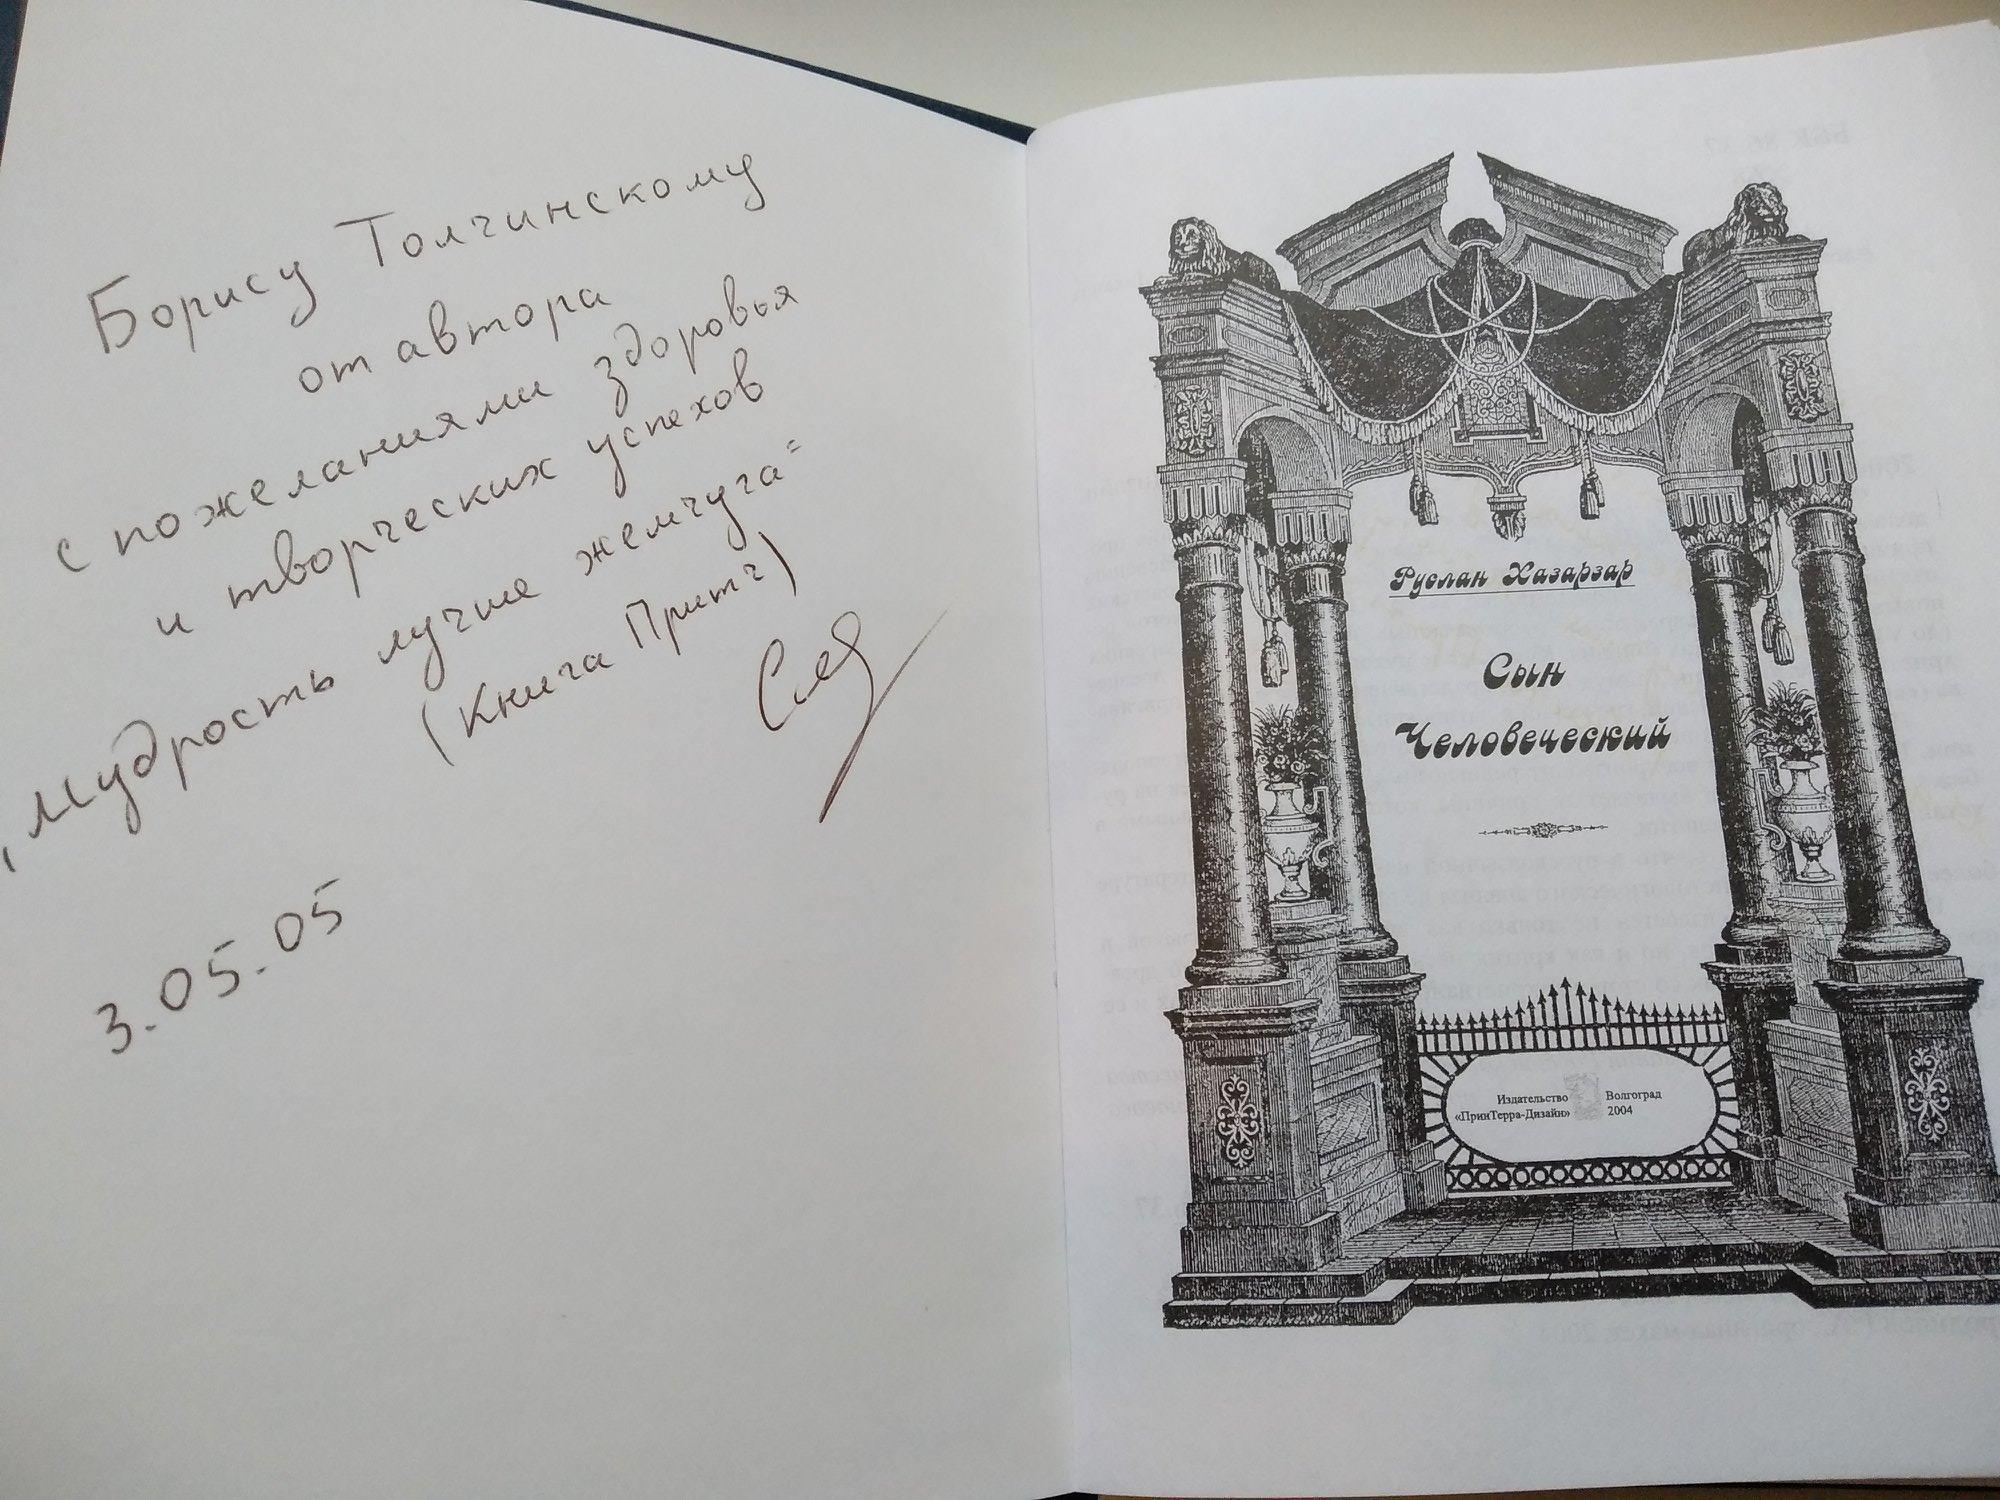 Борису Толчинскому
от автора
с пожеланиями здоровья
и творческих успехов
„Мудрость лучше жемчуга“
(Книга Притч)
3.05.05
Руслан Хазарзар
Сын
Человеческий
Издательство
«ПринТерра-Дизайн»
Волгоград
2004